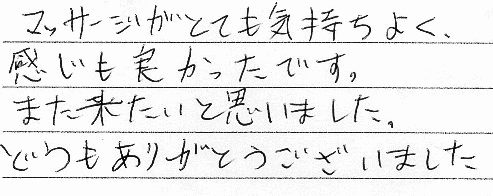 マッサージがとても気持ちよく、
感じも良かったです。
また来たいと思いました。
どうもありがとうございました